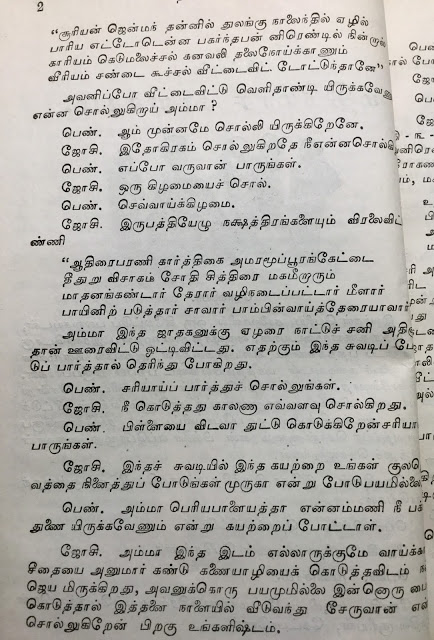 2
"சூரியன் ஜென்மந் தன்னில் துலங்கு நாலைந்தில் ஏழில்
பாரிய எட்டோடென்ன பகர்ந்தபன் னிரெண்டில் நின்றால்
காரியம் கெடுமலைச்சல் கனவலி தலைநோய்க்காணும்
வீரியம் சண்டை கூச்சல் விட்டைவிட் டோட்டுந்தானே"
அவனிப்போ விட்டைவிட்டு வெளிதாண்டி யிருக்கவேணு
என்ன சொல்லுகிறாய் அம்மா ?
பெண். ஆம் முன்னமே சொல்லி யிருக்கிறேனே.
ஜோசி. இதோகிரகம் சொல்லுகிறதே நீஎன்னசொல்கி
பெண். எப்போ வருவான் பாருங்கள்.
ஜோசி. ஒரு கிழமையைச் சொல்.
பெண். செவ்வாய்க்கிழமை.
ஜோசி. இருபத்தியேழு நக்ஷத்திரங்களையும் விரலைவிட்
ண்ணி
"ஆதிரைபரணி கார்த்திகை அமரமூப்பூரங்கேட்டை
தீதுறு விசாகம் சோதி சித்திரை மகமீரூரும்
மாதனங்கண்டார் தேரார் வழிநடைப்பட்டார் மீளார்
பாயினிற் படுத்தார் சாவார் பாம்பின்வாய்த்தேரையாவார்
அம்மா இந்த ஜாதகனுக்கு ஏழரை நாட்டுச் சனி அதி
தான் ஊரைவிட்டு ஒட்டிவிட்டது. எதற்கும் இந்த சுவடிப்
டுப் பார்த்தால் தெரிந்து போகிறது.
பெண். சரியாய்ப் பார்த்துச் சொல்லுங்கள்.
ஜோசி. நீ கொடுத்தது காலணா எவ்வளவு சொல்கிறது.
பெண். பிள்ளையை விடவா துட்டு கொடுக்கிறேன்சரியா
பாருங்கள்.
ஜோசி. இந்தச் சுவடியில் இந்த கயற்றை உங்கள் குல
வத்தை நினைத்துப் போடுங்கள் முருகா என்று போடுபயமில்லை
பெண். அம்மா பெரியபாளையத்தா என்னம்மணி நீ பக்
துணை யிருக்கவேணும் என்று கயற்றைப் போட்டாள்.
ஜோசி. அம்மா இந்த இடம் எல்லாருக்குமே வாய்க்க
சீதையை அனுமார் கண்டு கணையாழியைக் கொடுத்தவிடம்
ஜெய மிருக்கிறது, அவனுக்கொரு பயமுமில்லை இன்னொரு பை
கொடுத்தால் இத்தனை நாளையில் வீடுவந்து சேருவான் என்
சொல்லுகிறேன் பிறகு உங்களிஷ்டம்.